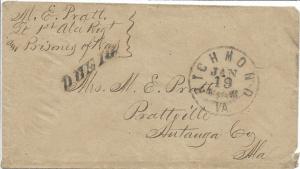 M. E. Pratt.
1st Ala Regt
Prisoner of War
DUE 10
RICHMOND
JAN
19
VA
Mrs. M. E. Pratt
Prattville
Autauga Co
Ala